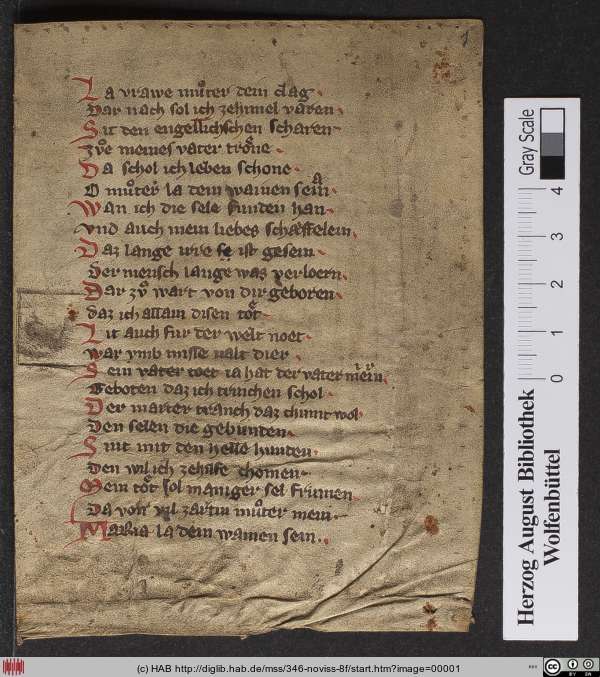 1
La vrawe muͦter dein clag
Dar nach sol ich ze himel varen
Sit den engellichschen scharen
Zvͦe meines vater trone
Da schol ich leben schone
O muͦter la dein wainen sein
Wan ich die sele funden han
vnd auch mein liebes scheffelein
Daz lange irre ist gesein
Der mensch lange was verloern
Dar zvͦ wart von dir geboren
daz ich allain disen tot
Lit auch fur der welt noet
war ymb
Sein vater toet ia hat der vater
Geboten daz ich trinchen schol
Der marter tranch daz chumt wol
Den selen die gebunten
Sint mit den helle hunten
den wil ich zehilfe chomen
Mein tot sol maniger sel frumen
Da von vil zartiu muͦter mein
Maria la dein wainen sein
Gray Scale
0 1 2 3 4
Herzog August Bibliothek
Wolfenbüttel
(c) HAB http://diglib.hab.de/mss/346-noviss-8f/start.htm?image=00001
cc BY SA